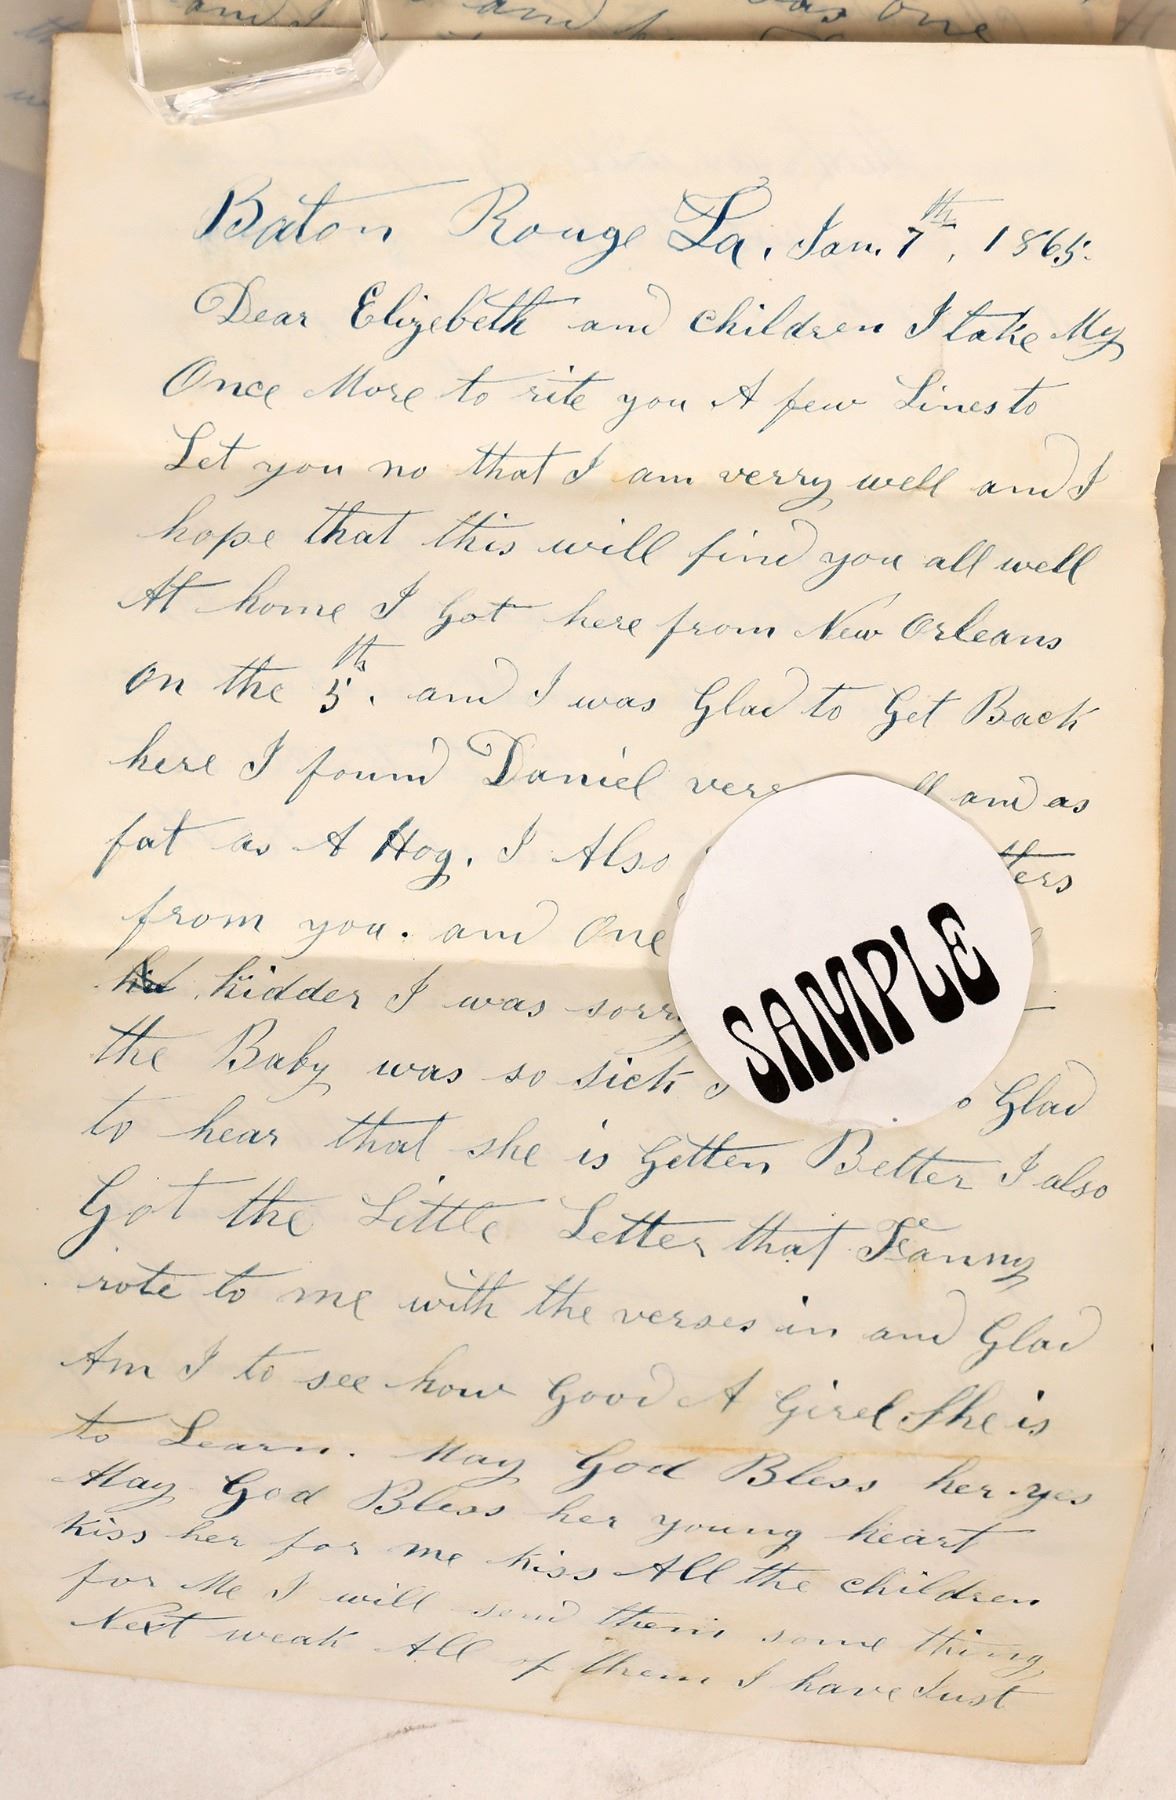 Baton Rouge La. Jan. 7th, 1865.
Dear Elizebeth and children I take My
Once More to rite you A few Lines to
Let you no that I am verry well and I
hope that this will find you all well
At home I Got here from New Orleans
on the 5th. and I was Glad to Get Back
here I found Daniel and as
fat as A Hog. I Also
from you. and One
kidder I was
the Baby was so sick Glad
to hear that she is Getten Better I also
Got the Little Letter that Fanny
rote to me with the verses in and Glad
Am I to see how Good A Girel She is
to Learn. May God Bless her yes
May God Bless her young heart
kiss her for me kiss All the children
for Me I will send them some thing
Next weak All of them I have Just
SAMPLE